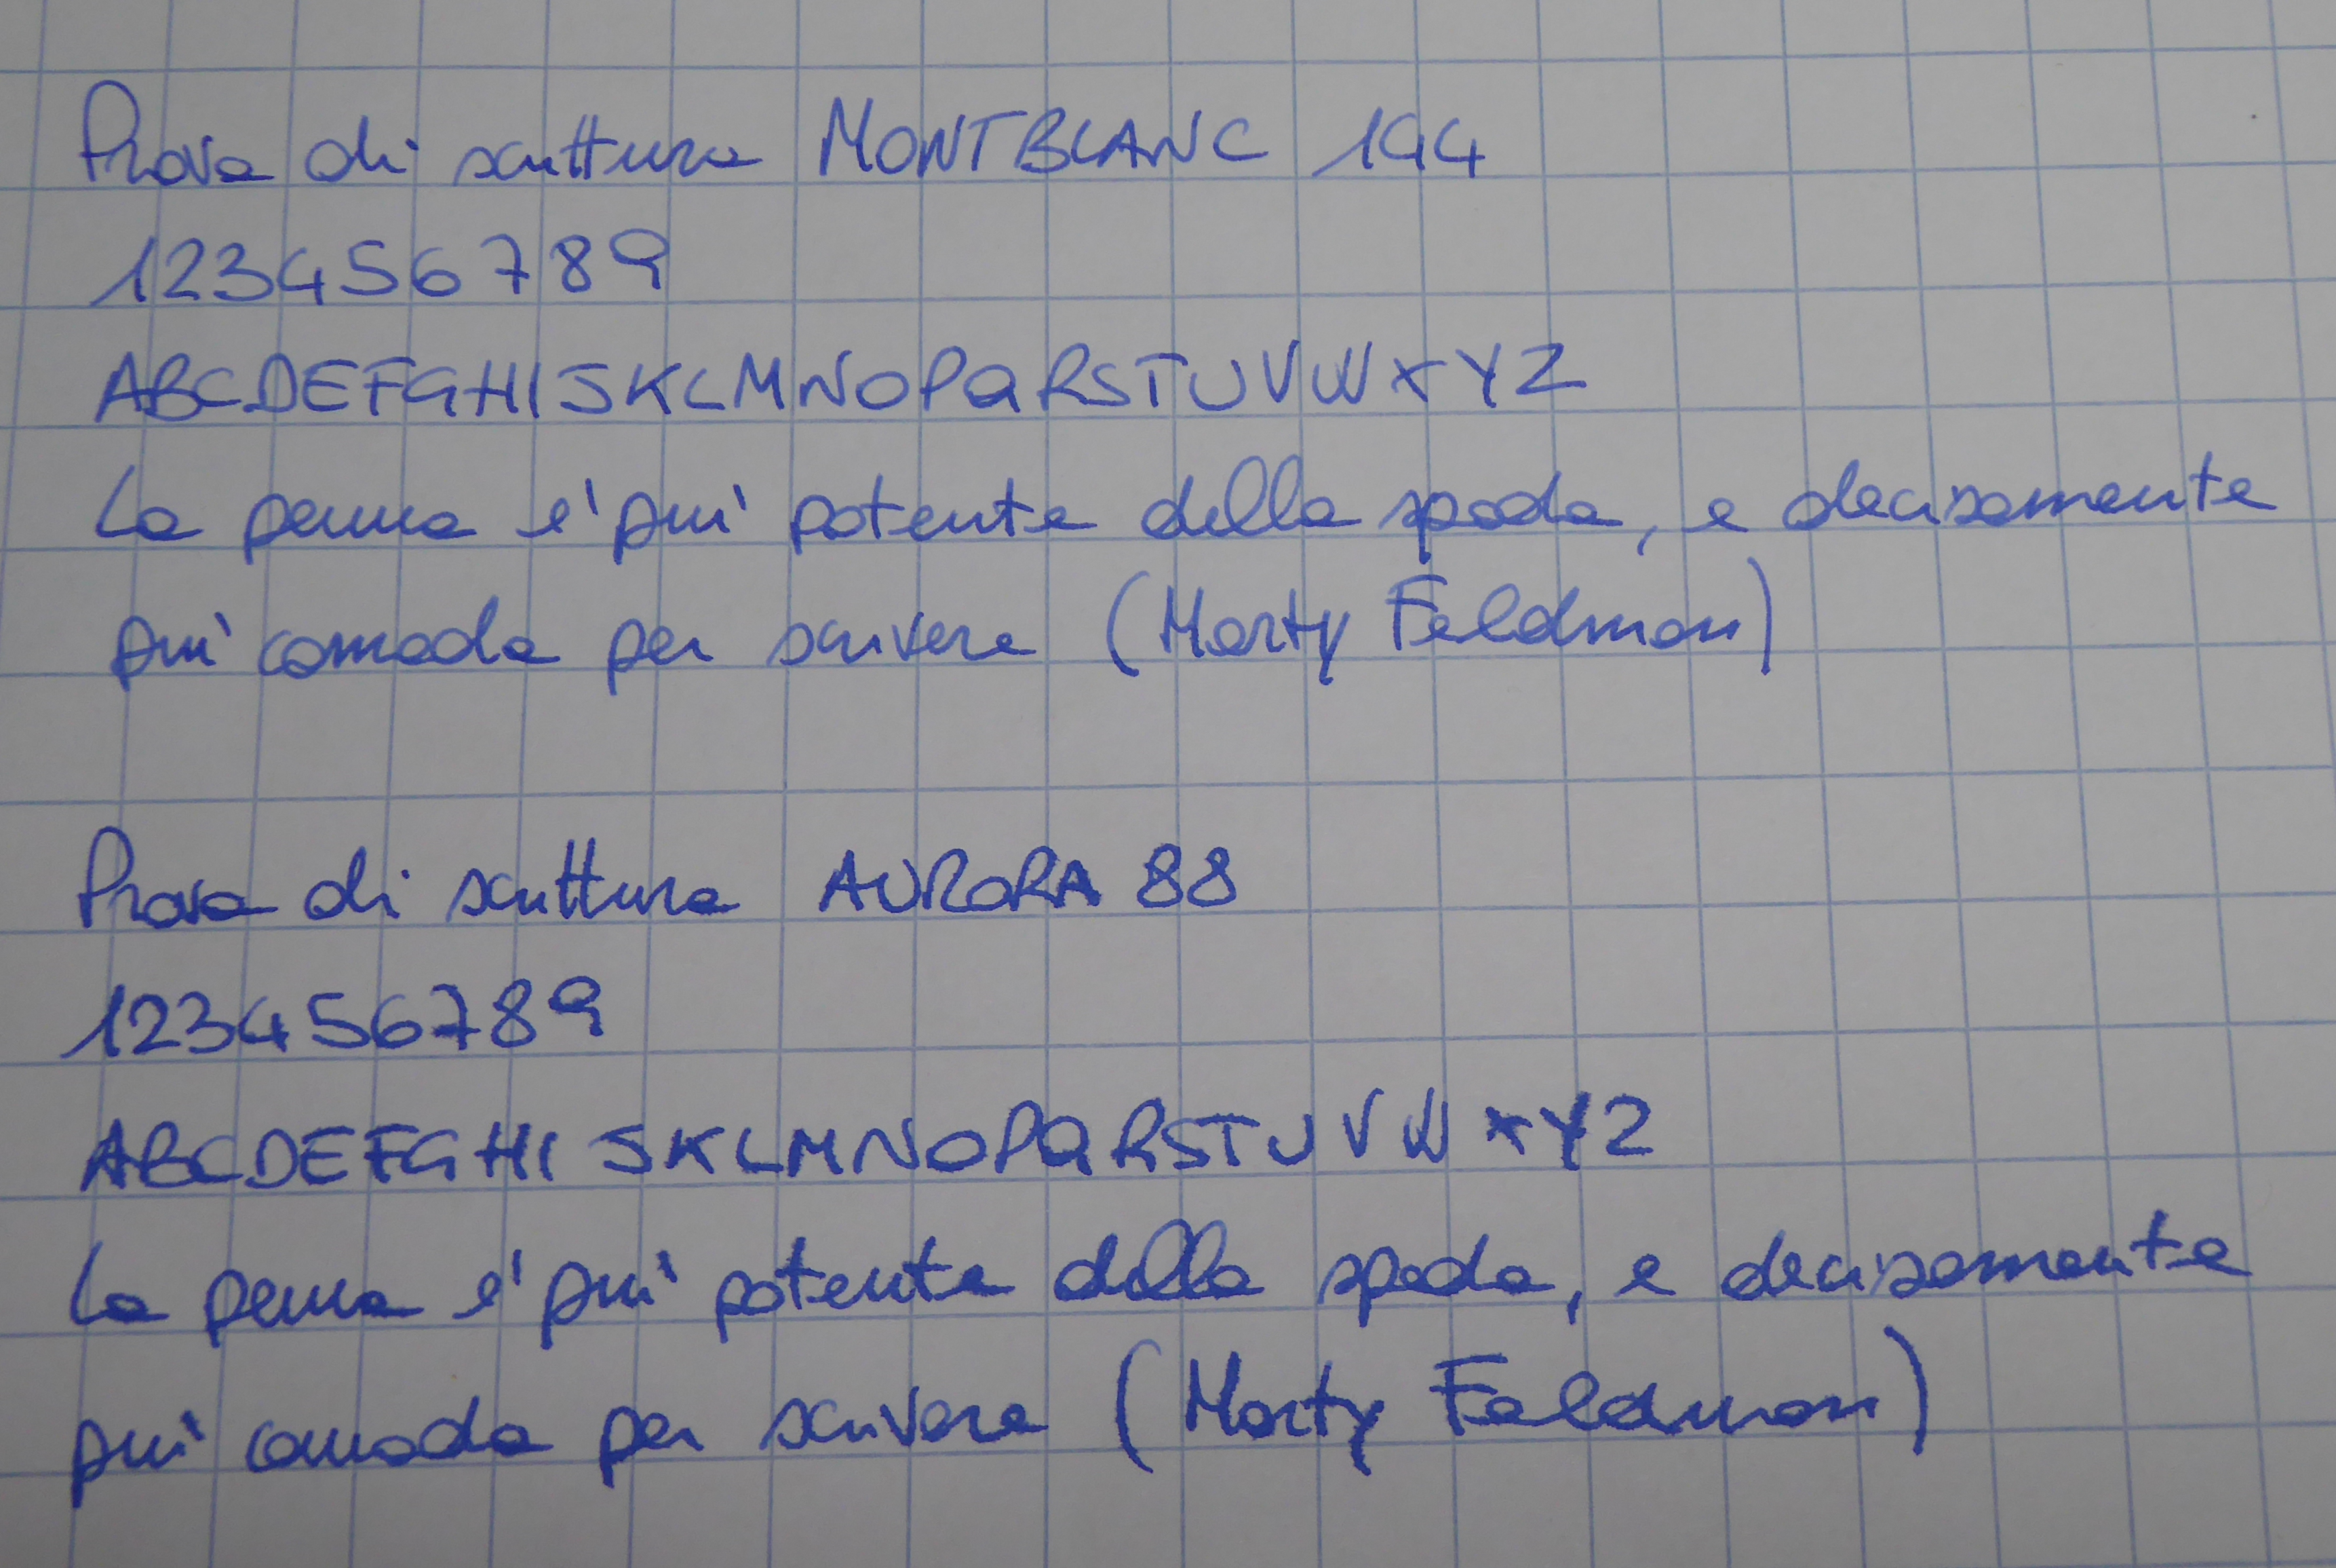 Prova di scrittura MONTBLANC 144
123456789
ABCDEFGHIJKLMNOPQRSTUVWXYZ
La penna e' piu' potente della spada, e decisamente
piu' comoda per scrivere (Marty Feldman)
Prova di scrittura AURORA 88
123456789
ABCDEFGHIJKLMNOPQRSTUVWXYZ
La penna e' piu' potente della spada, e decisamente
piu' comoda per scrivere (Marty Feldman)